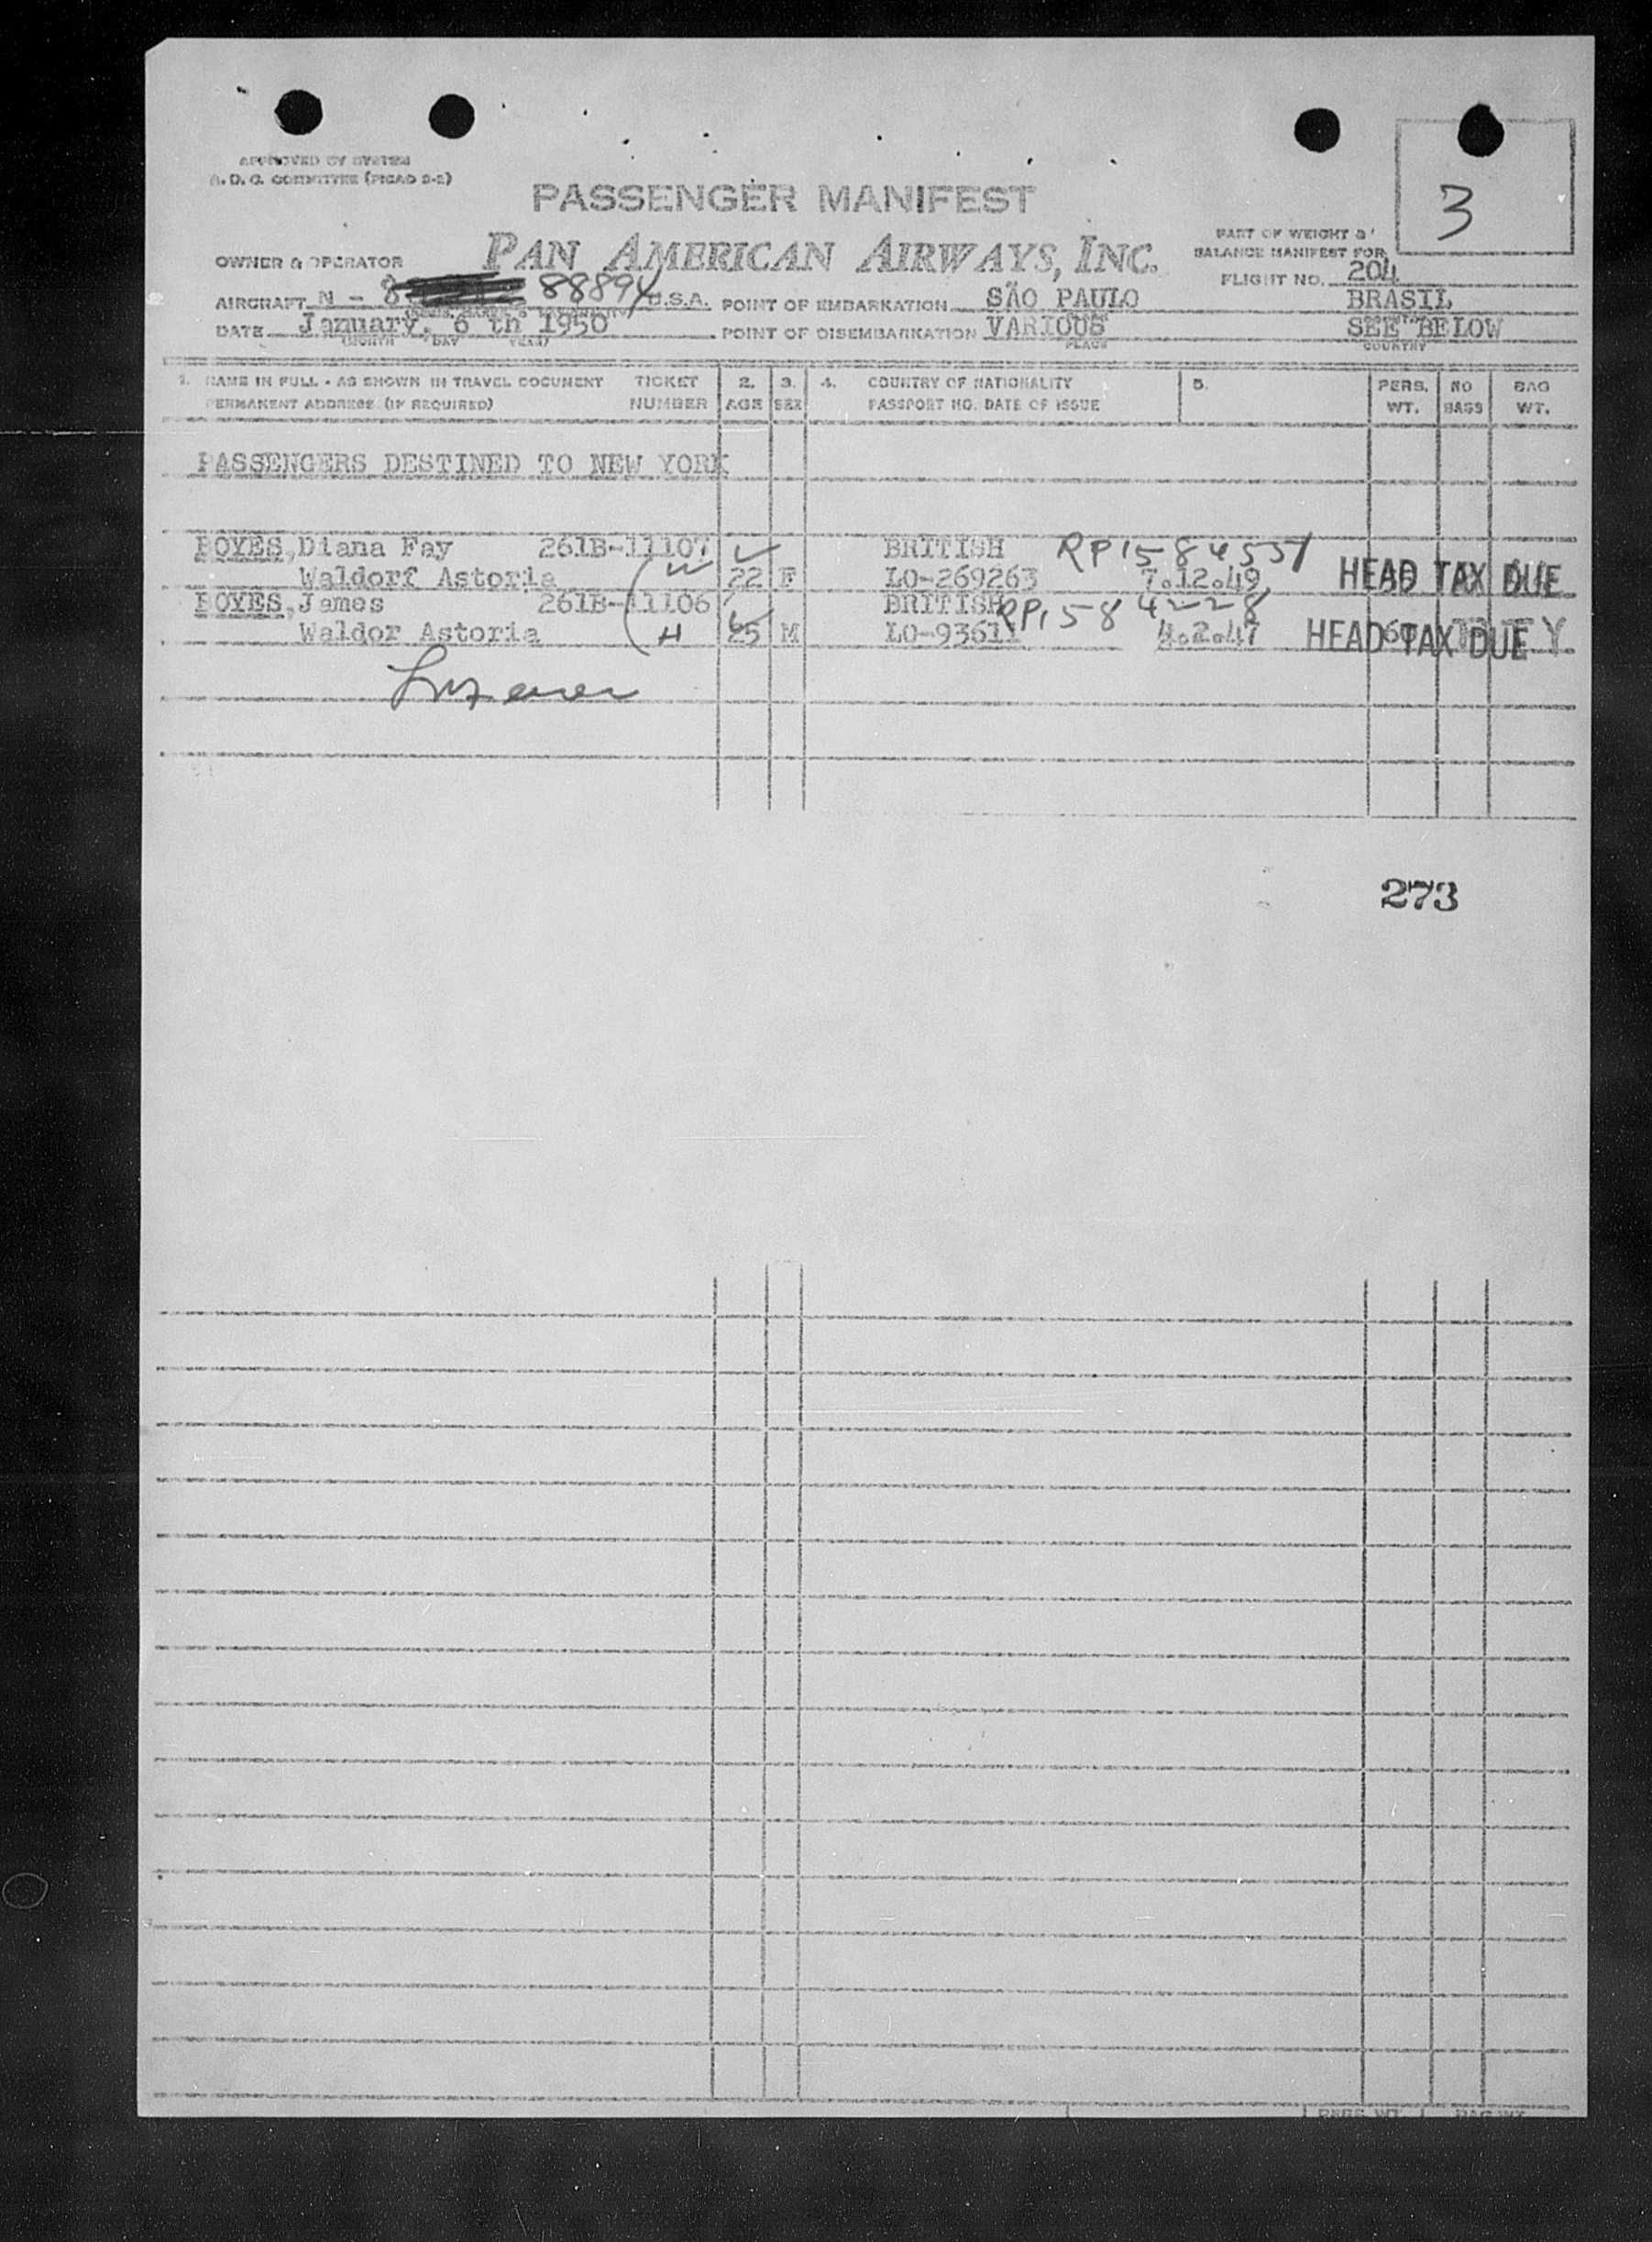 APPROVED BY SYSTEM
A. D. C. COMMITTEE (PICAO 2-2)
3
PASSENGER MANIFEST
PART OF WEIGHT &
BALANCE MANIFEST FOR
OWNER & OPERATOR PAN AMERICAN AIRWAYS, INC.
FLIGHT NO. 204
AIRCRAFT N - 88894 U.S.A. POINT OF EMBARKATION SÃO PAULO BRASIL
DATE January, 6 th 1950 POINT OF DISEMBARKATION VARIOUS SEE BELOW
(MONTH DAY YEAR) PLACE COUNTRY
1. NAME IN FULL - AS SHOWN IN TRAVEL DOCUMENT TICKET 2. 3. 4. COUNTRY OF NATIONALITY 5. PERS. NO BAG
PERMANENT ADDRESS (IF REQUIRED) NUMBER AGE SEX PASSPORT NO. DATE OF ISSUE WT. BAGS WT.
PASSENGERS DESTINED TO NEW YORK
Diana Fay 261B-11107 BRITISH
Waldorf Astoria W 22 F LO-269263 7.12.49 HEAD TAX DUE
James 261B-11106 BRITISH RP1584228
Waldor Astoria H 25 M LO-93611 4.2.47 HEAD TAX DUE
273
PERS. WT. BAG WT.